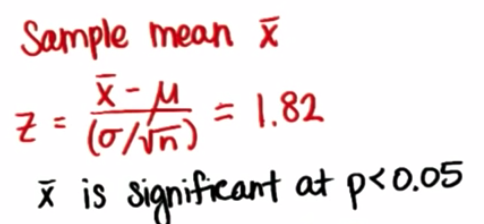 Sample mean x̄
z = x̄ - μ / (σ/√n) = 1.82
x̄ is significant at p<0.05